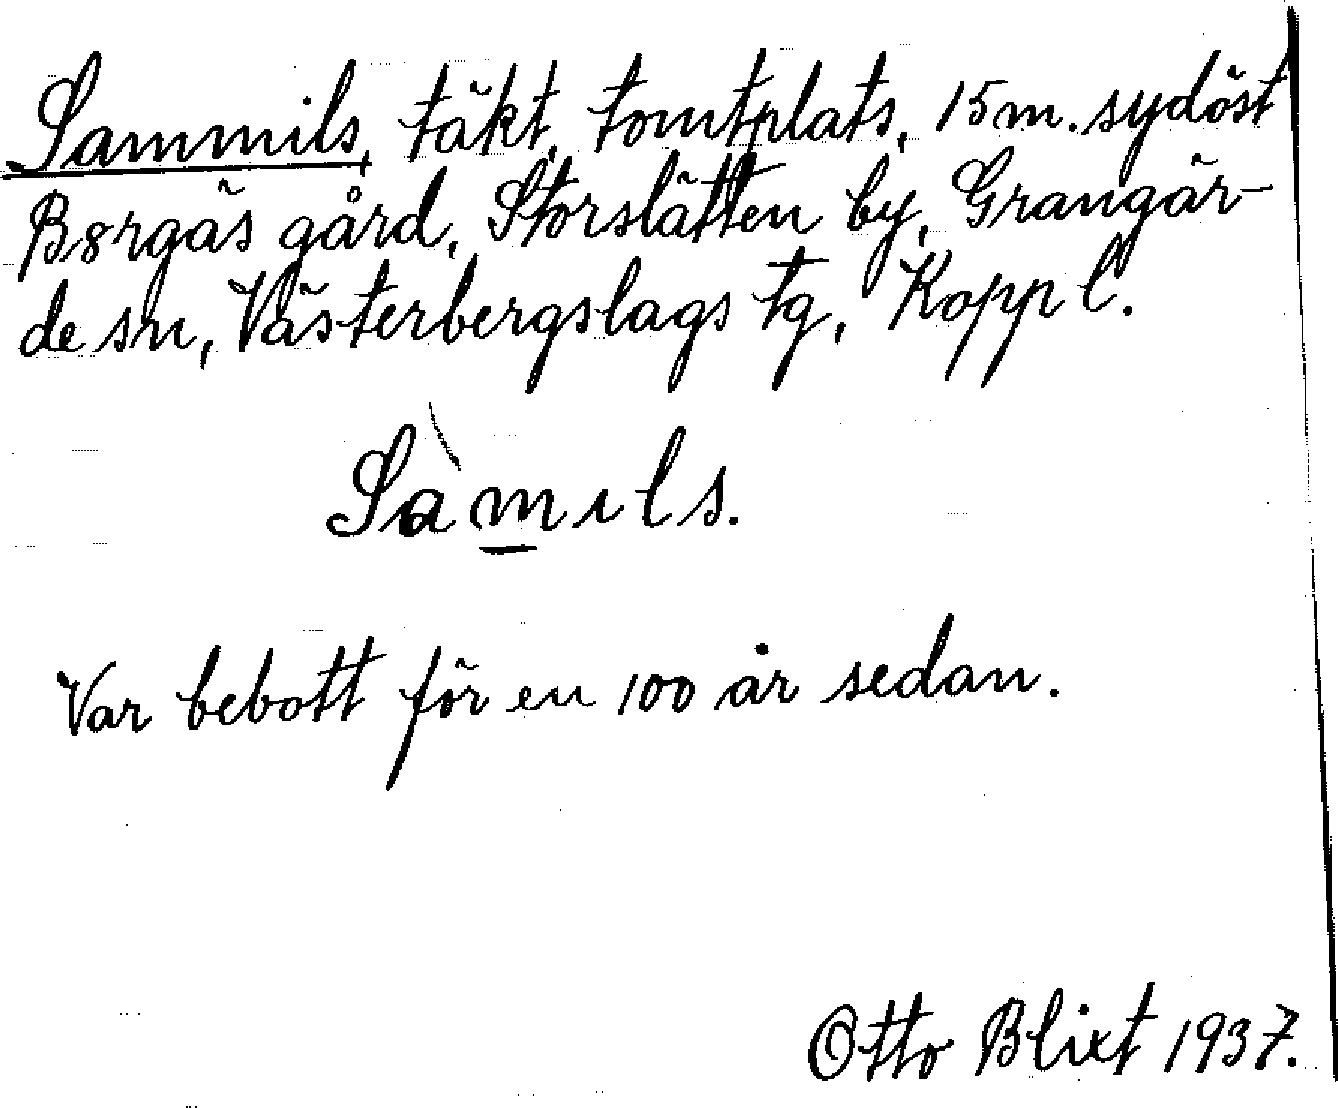 Sammils, täkt, tomtplats, 15 m. sydöst
Börgäs gård, Storslätten by, Grangär-
de sn, Västerbergslags tg, Kopp l.
Sàmıls.
Var bebott för en 100 år sedan.
Otto Blixt 1937.